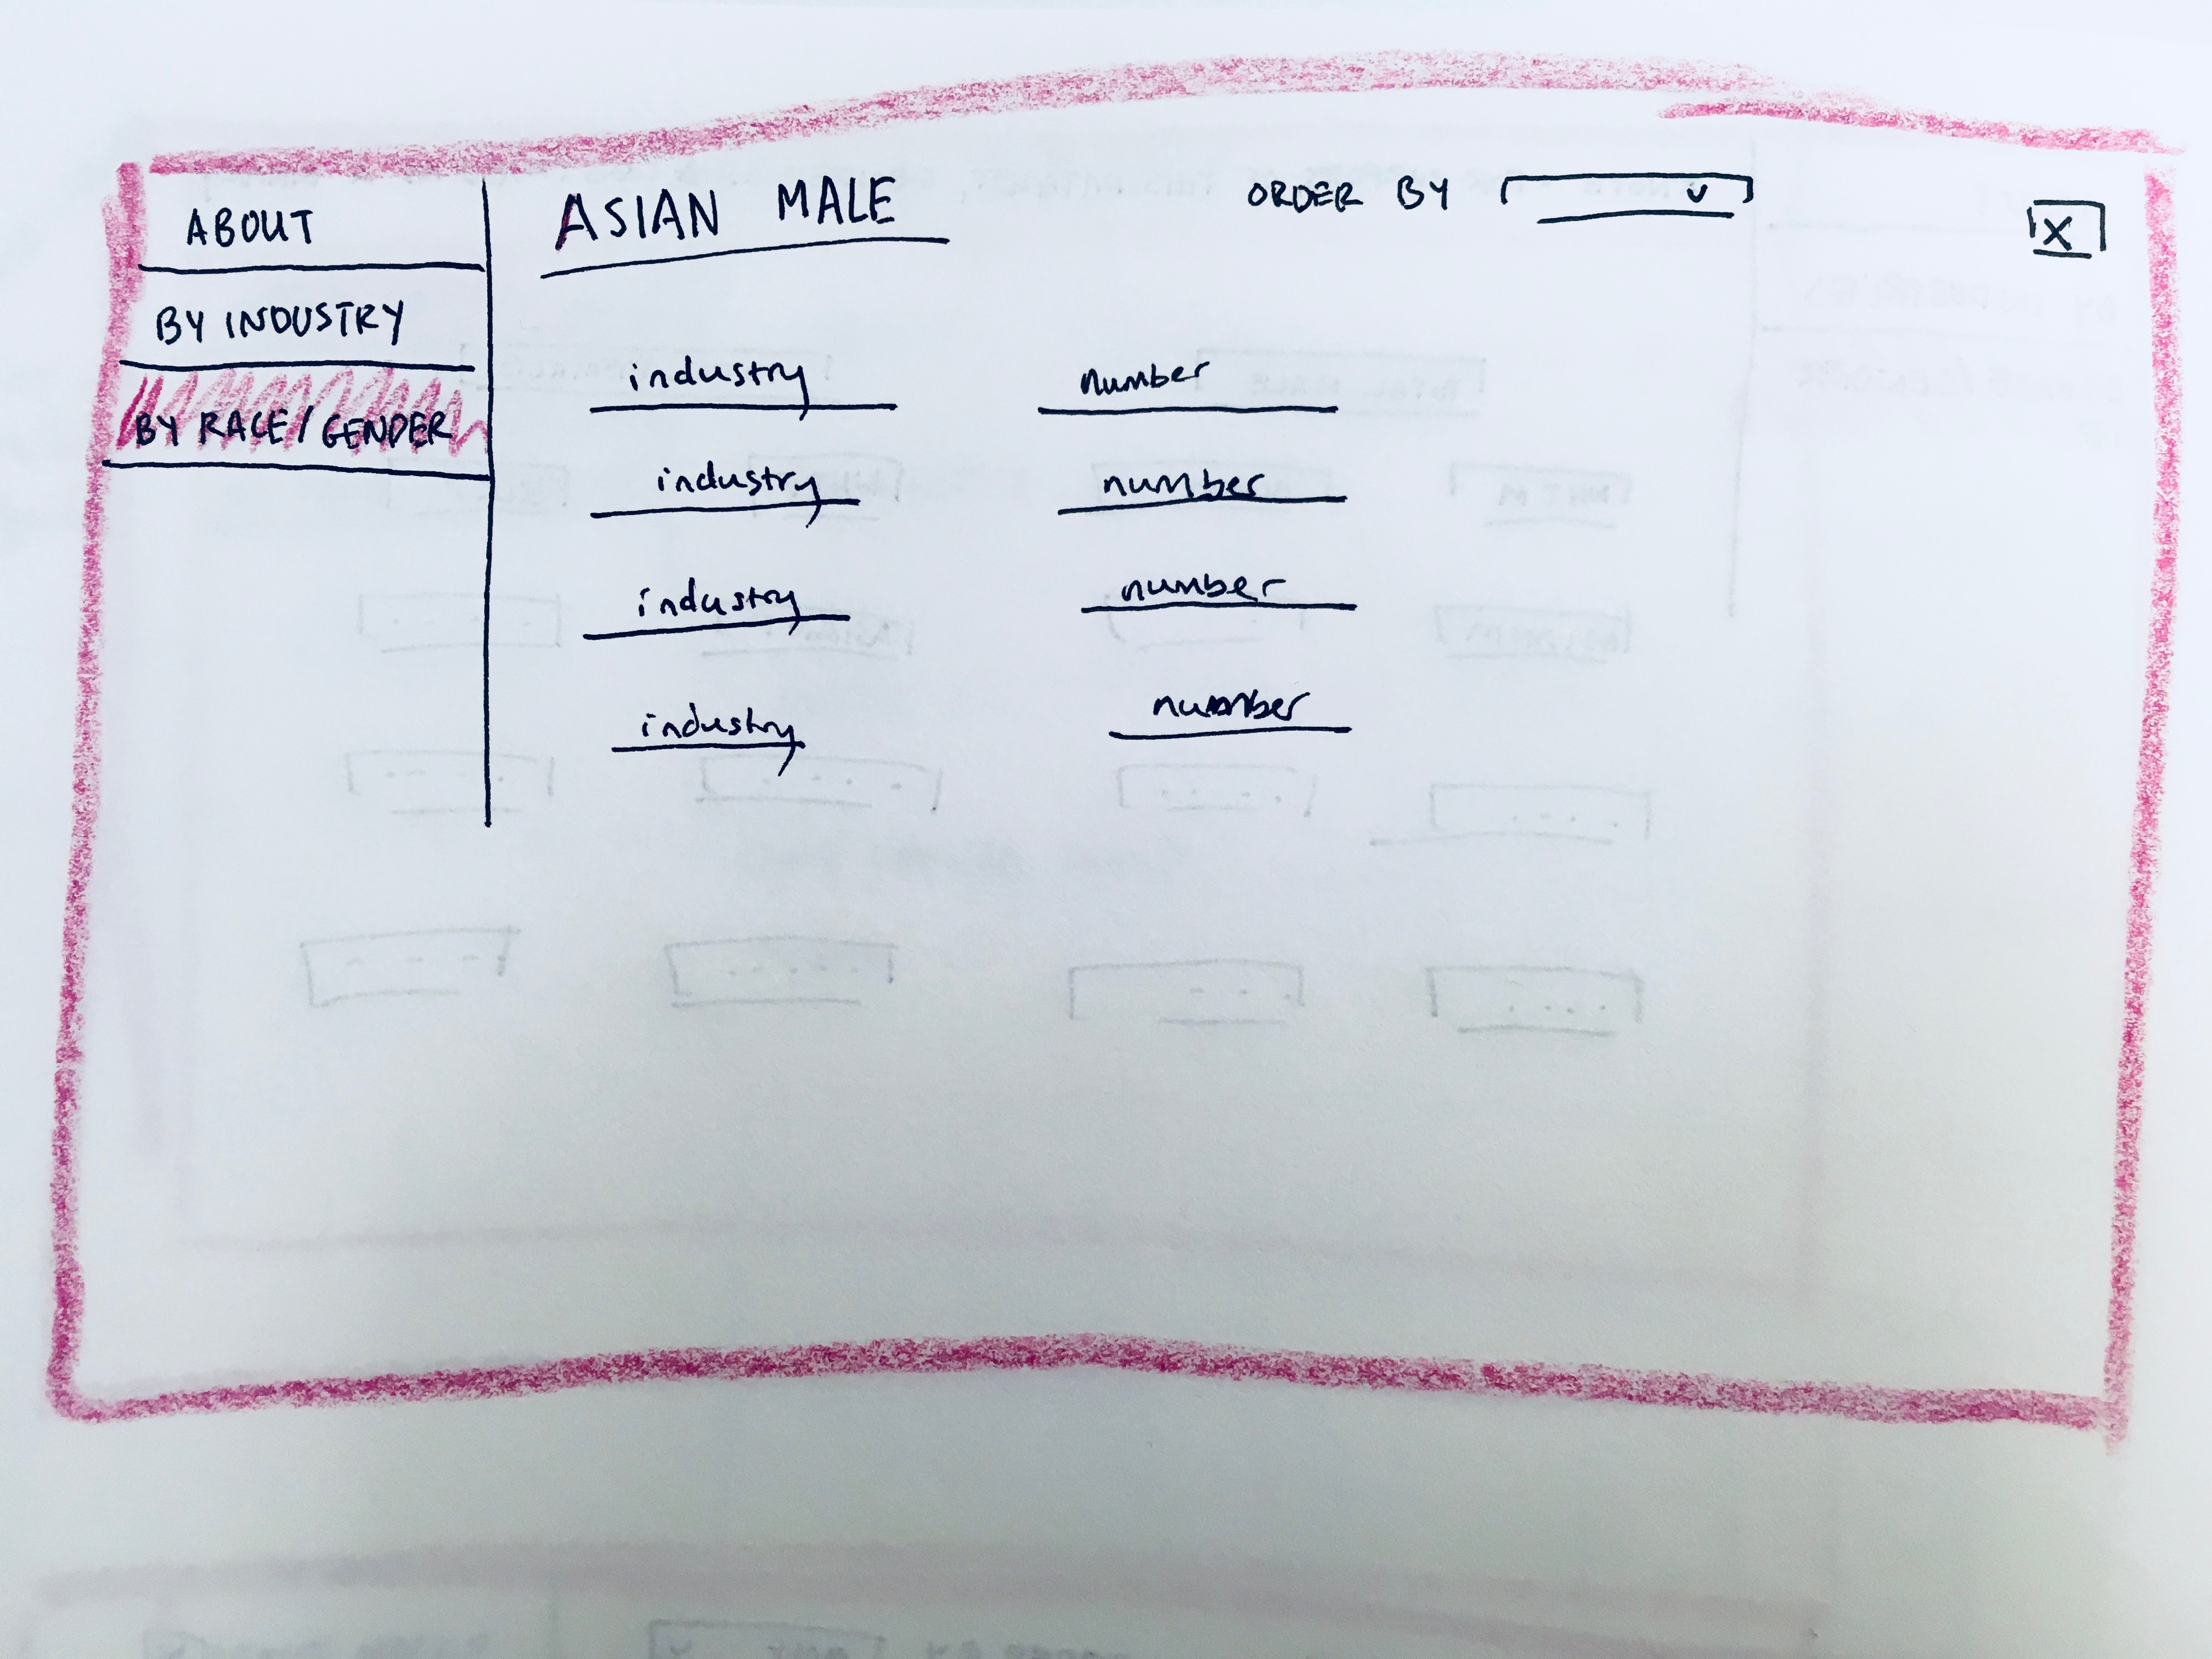 ABOUT
BY INDUSTRY
BY RACE/GENDER
ASIAN MALE
ORDER BY
X
industry number
industry number
industry number
industry number